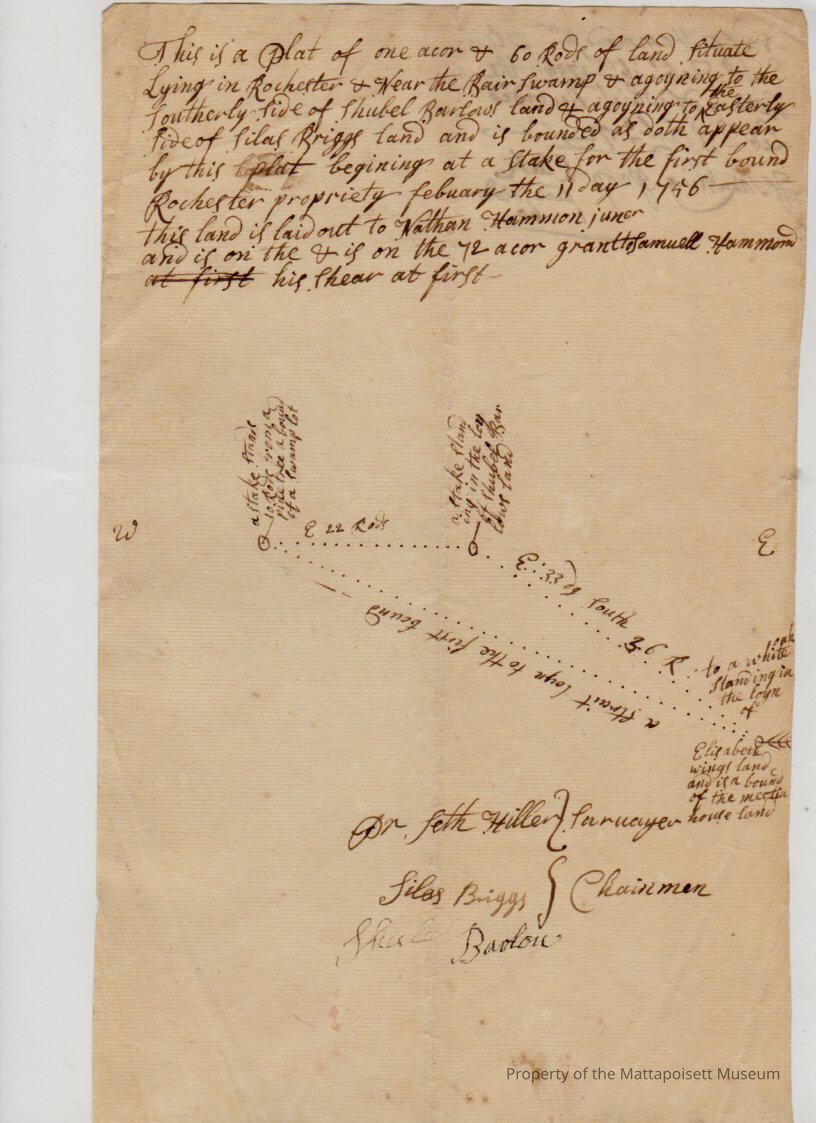 This is a Plat of one acor & 60 Rods of land situate
Lying in Rochester & Near the Bair Swamp & agoyning to the
Southerly side of Shubel Barlows land & agoyning to the Easterly
side of Silas Briggs land and is bounded as doth appear
by this plat begining at a Stake for the first bound
Rochester propriety febuary the 11 day 1756
this land is laid out to Nathan Hammon juner
and is on the & is on the 72 acor grant to Samuell Hammond
at first his shear at first
a stake stands
10 Rods from a
pine tree a bound
of a swamp lot
a stake stand
ing in the loy
of Shubel Bar
lows land
W
E 22 Rods
E
E: 33 dg South 36 R
to a white oak
standing in
the loyn
of
Elisabeth
wings land
and is a bound
of the meetin
house land
a strait loyn to the first bound
Pr. Seth Hiller } Survayer
Silas Briggs } Chainmen
Shubel Barlow
Property of the Mattapoisett Museum